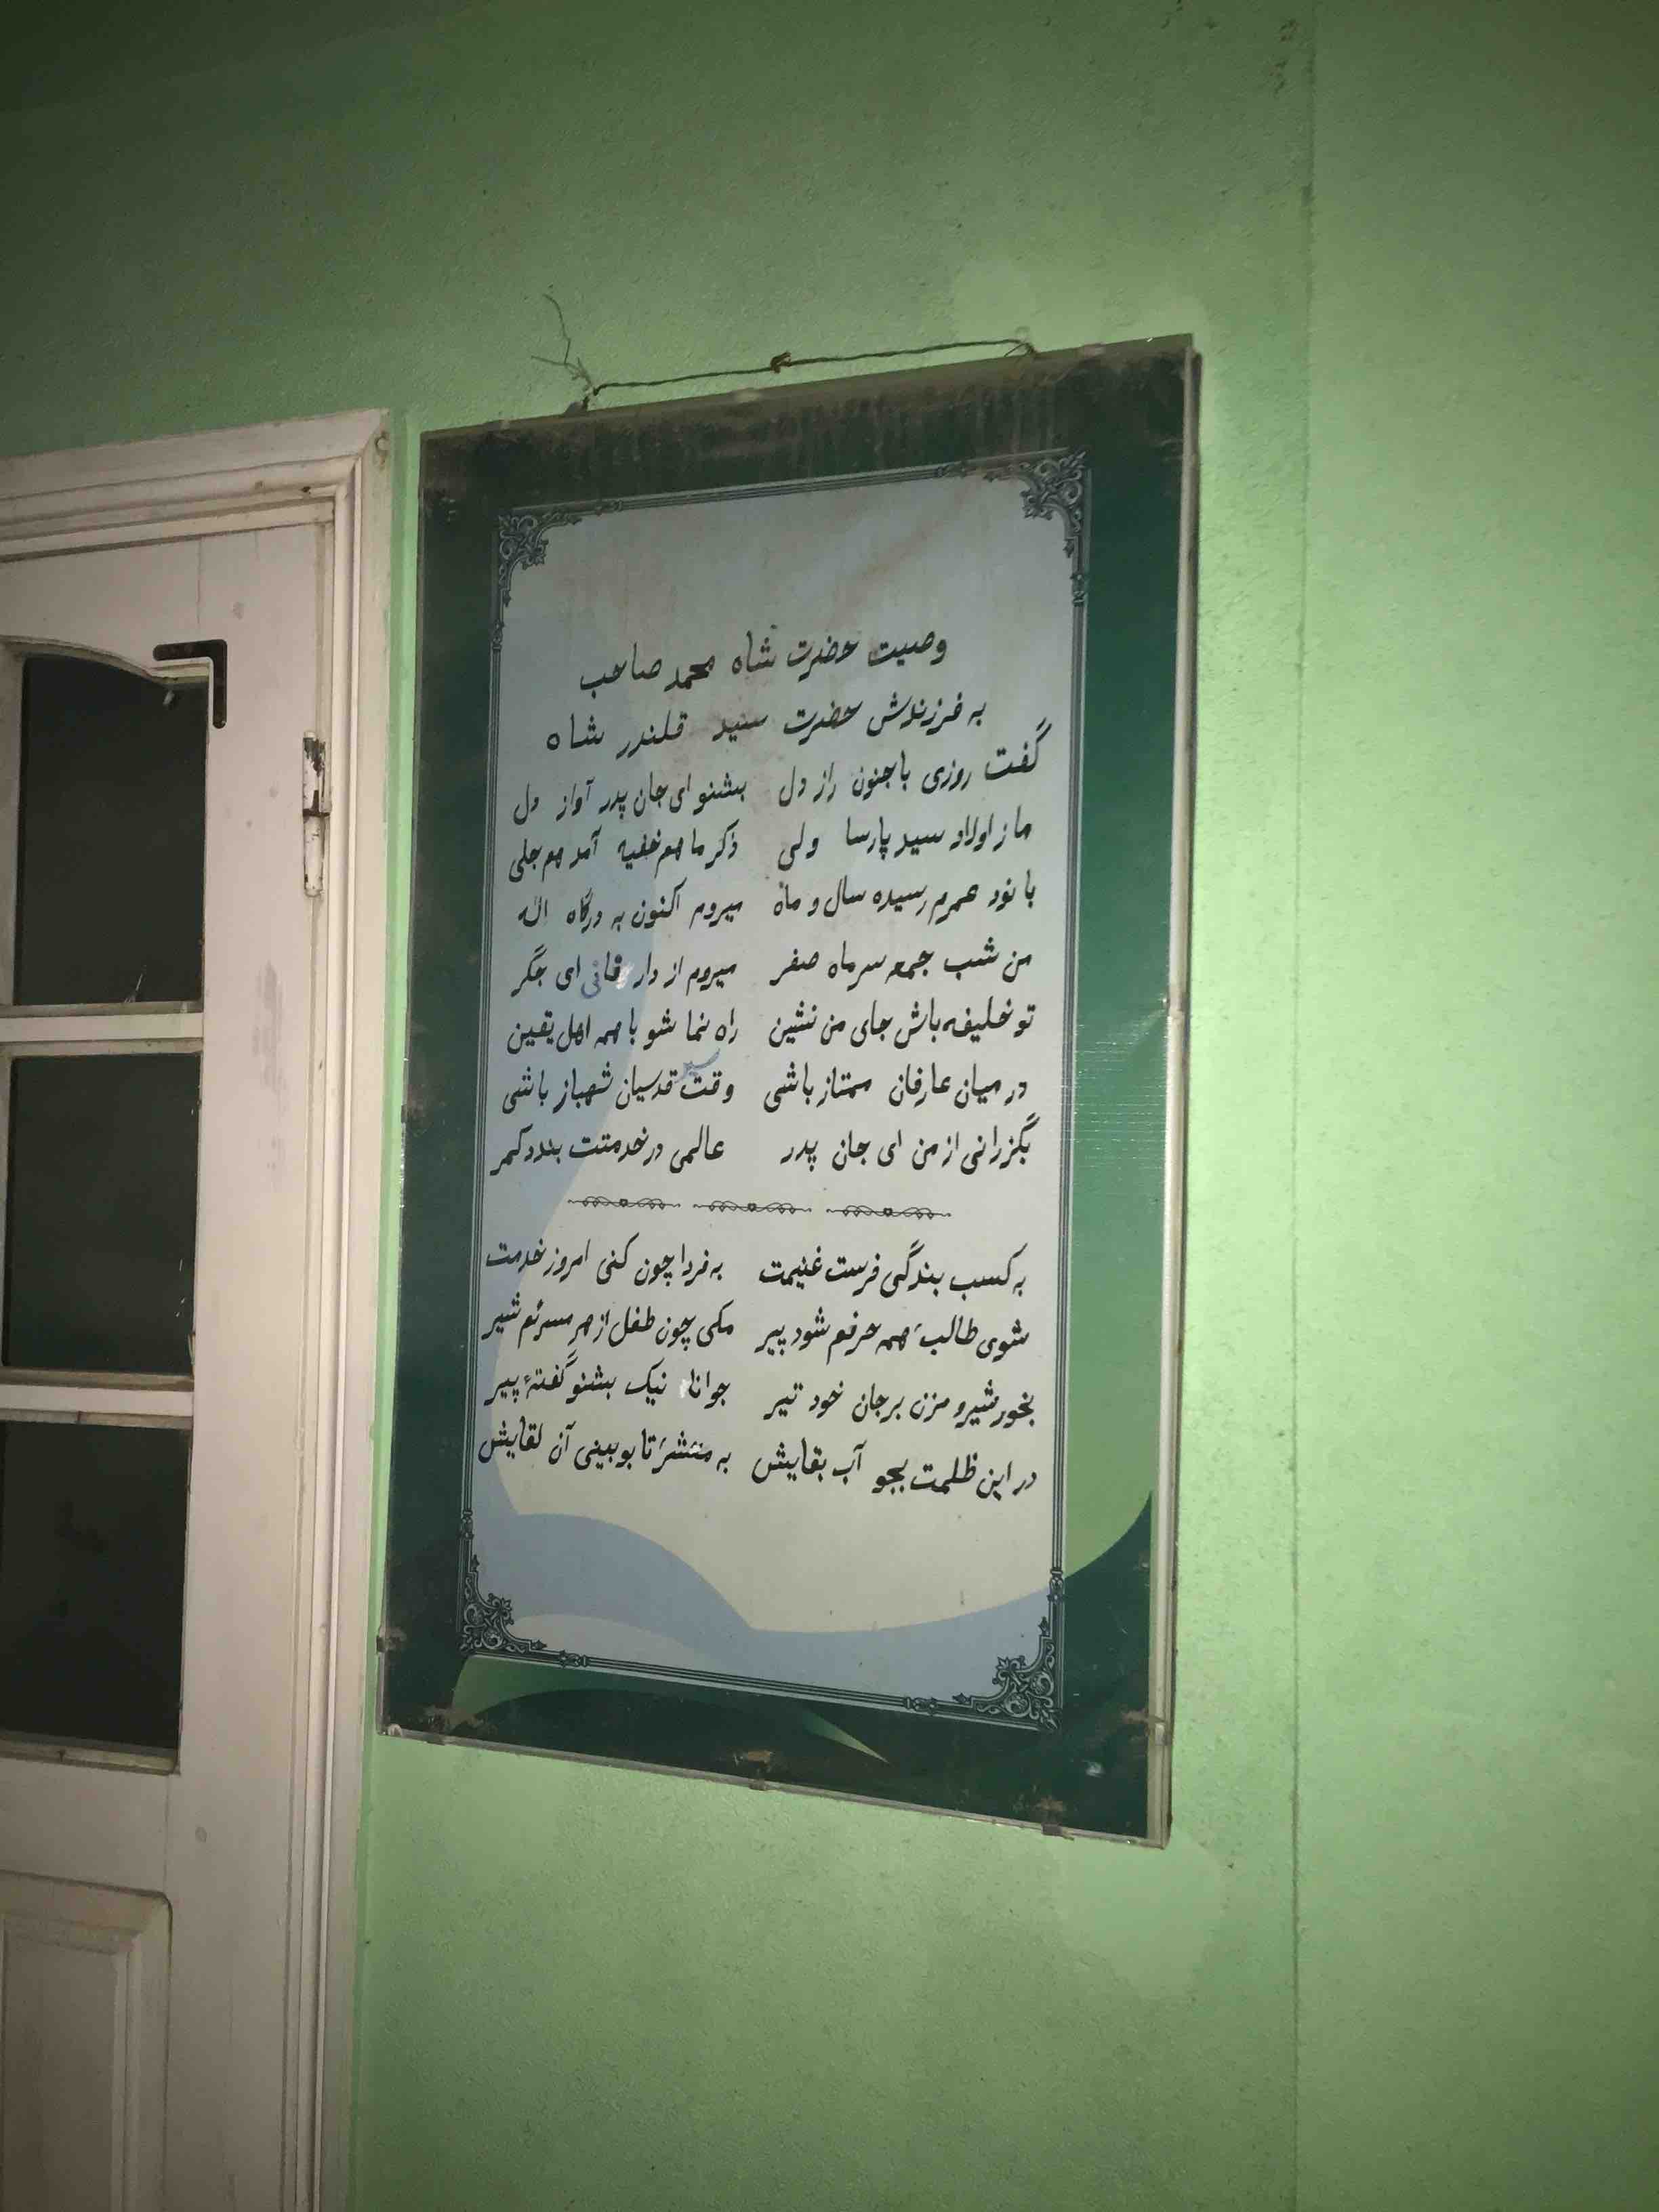 وصیت حضرت شاه محمد صاحب
به فرزندش حضرت سید قلندر شاه
گفت روزی با جنون راز دل بشنو ای جان پدر آواز دل
ما ز اولاد سید پارسا ولی ذکر ما هم خفیه آمد هم جلی
با نود عمرم رسیده سال و ماه میروم اکنون به درگاه اله
من شب جمعه سر ماه صفر میروم از دار فانی ای جگر
تو خلیفه باش جای من نشین راه نما شو با همه اهل یقین
در میان عارفان ممتاز باشی وقت سیر قدسیان شهباز باشی
بگزرانی از من ای جان پدر عالمی در خدمتت بندد کمر
به کسب بندگی فرست غنیمت به فردا چون کنی امروز خدمت
شوی طالب همه حرفم شود پیر مکی چون طفل از هر سرئم شیر
بخور شیر و مزن بر جان خود تیر جوانا نیک بشنو گفتهٔ پیر
در این ظلمت بجو آب بقایش به منتشر تا بوبینی آن لقایش